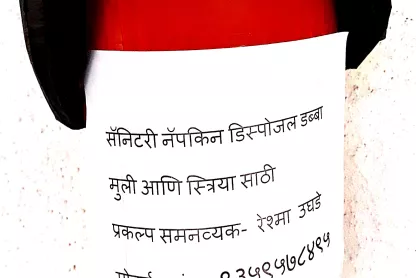 सॅनिटरी नॅपकिन डिस्पोजल डब्बा
मुली आणि स्त्रिया साठी
प्रकल्प समनव्यक- रेश्मा उघडे